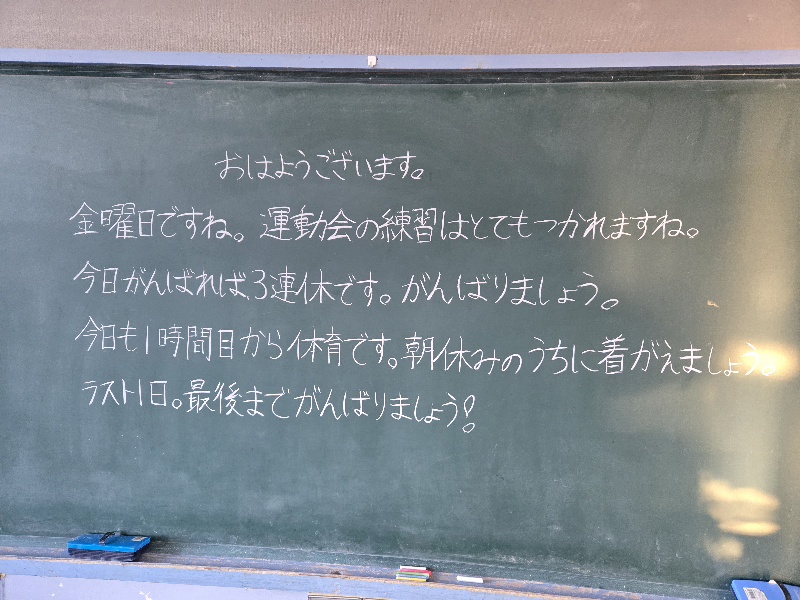 おはようございます。
金曜日ですね。運動会の練習はとてもつかれますね。
今日がんばれば、3連休です。がんばりましょう。
今日も1時間目から体育です。朝休みのうちに着がえましょう。
ラスト1日。最後までがんばりましょう!